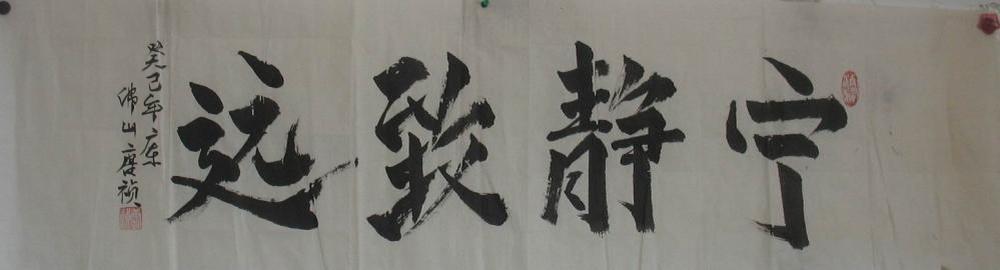 宁静致远
癸巳年广东
佛山唐祯